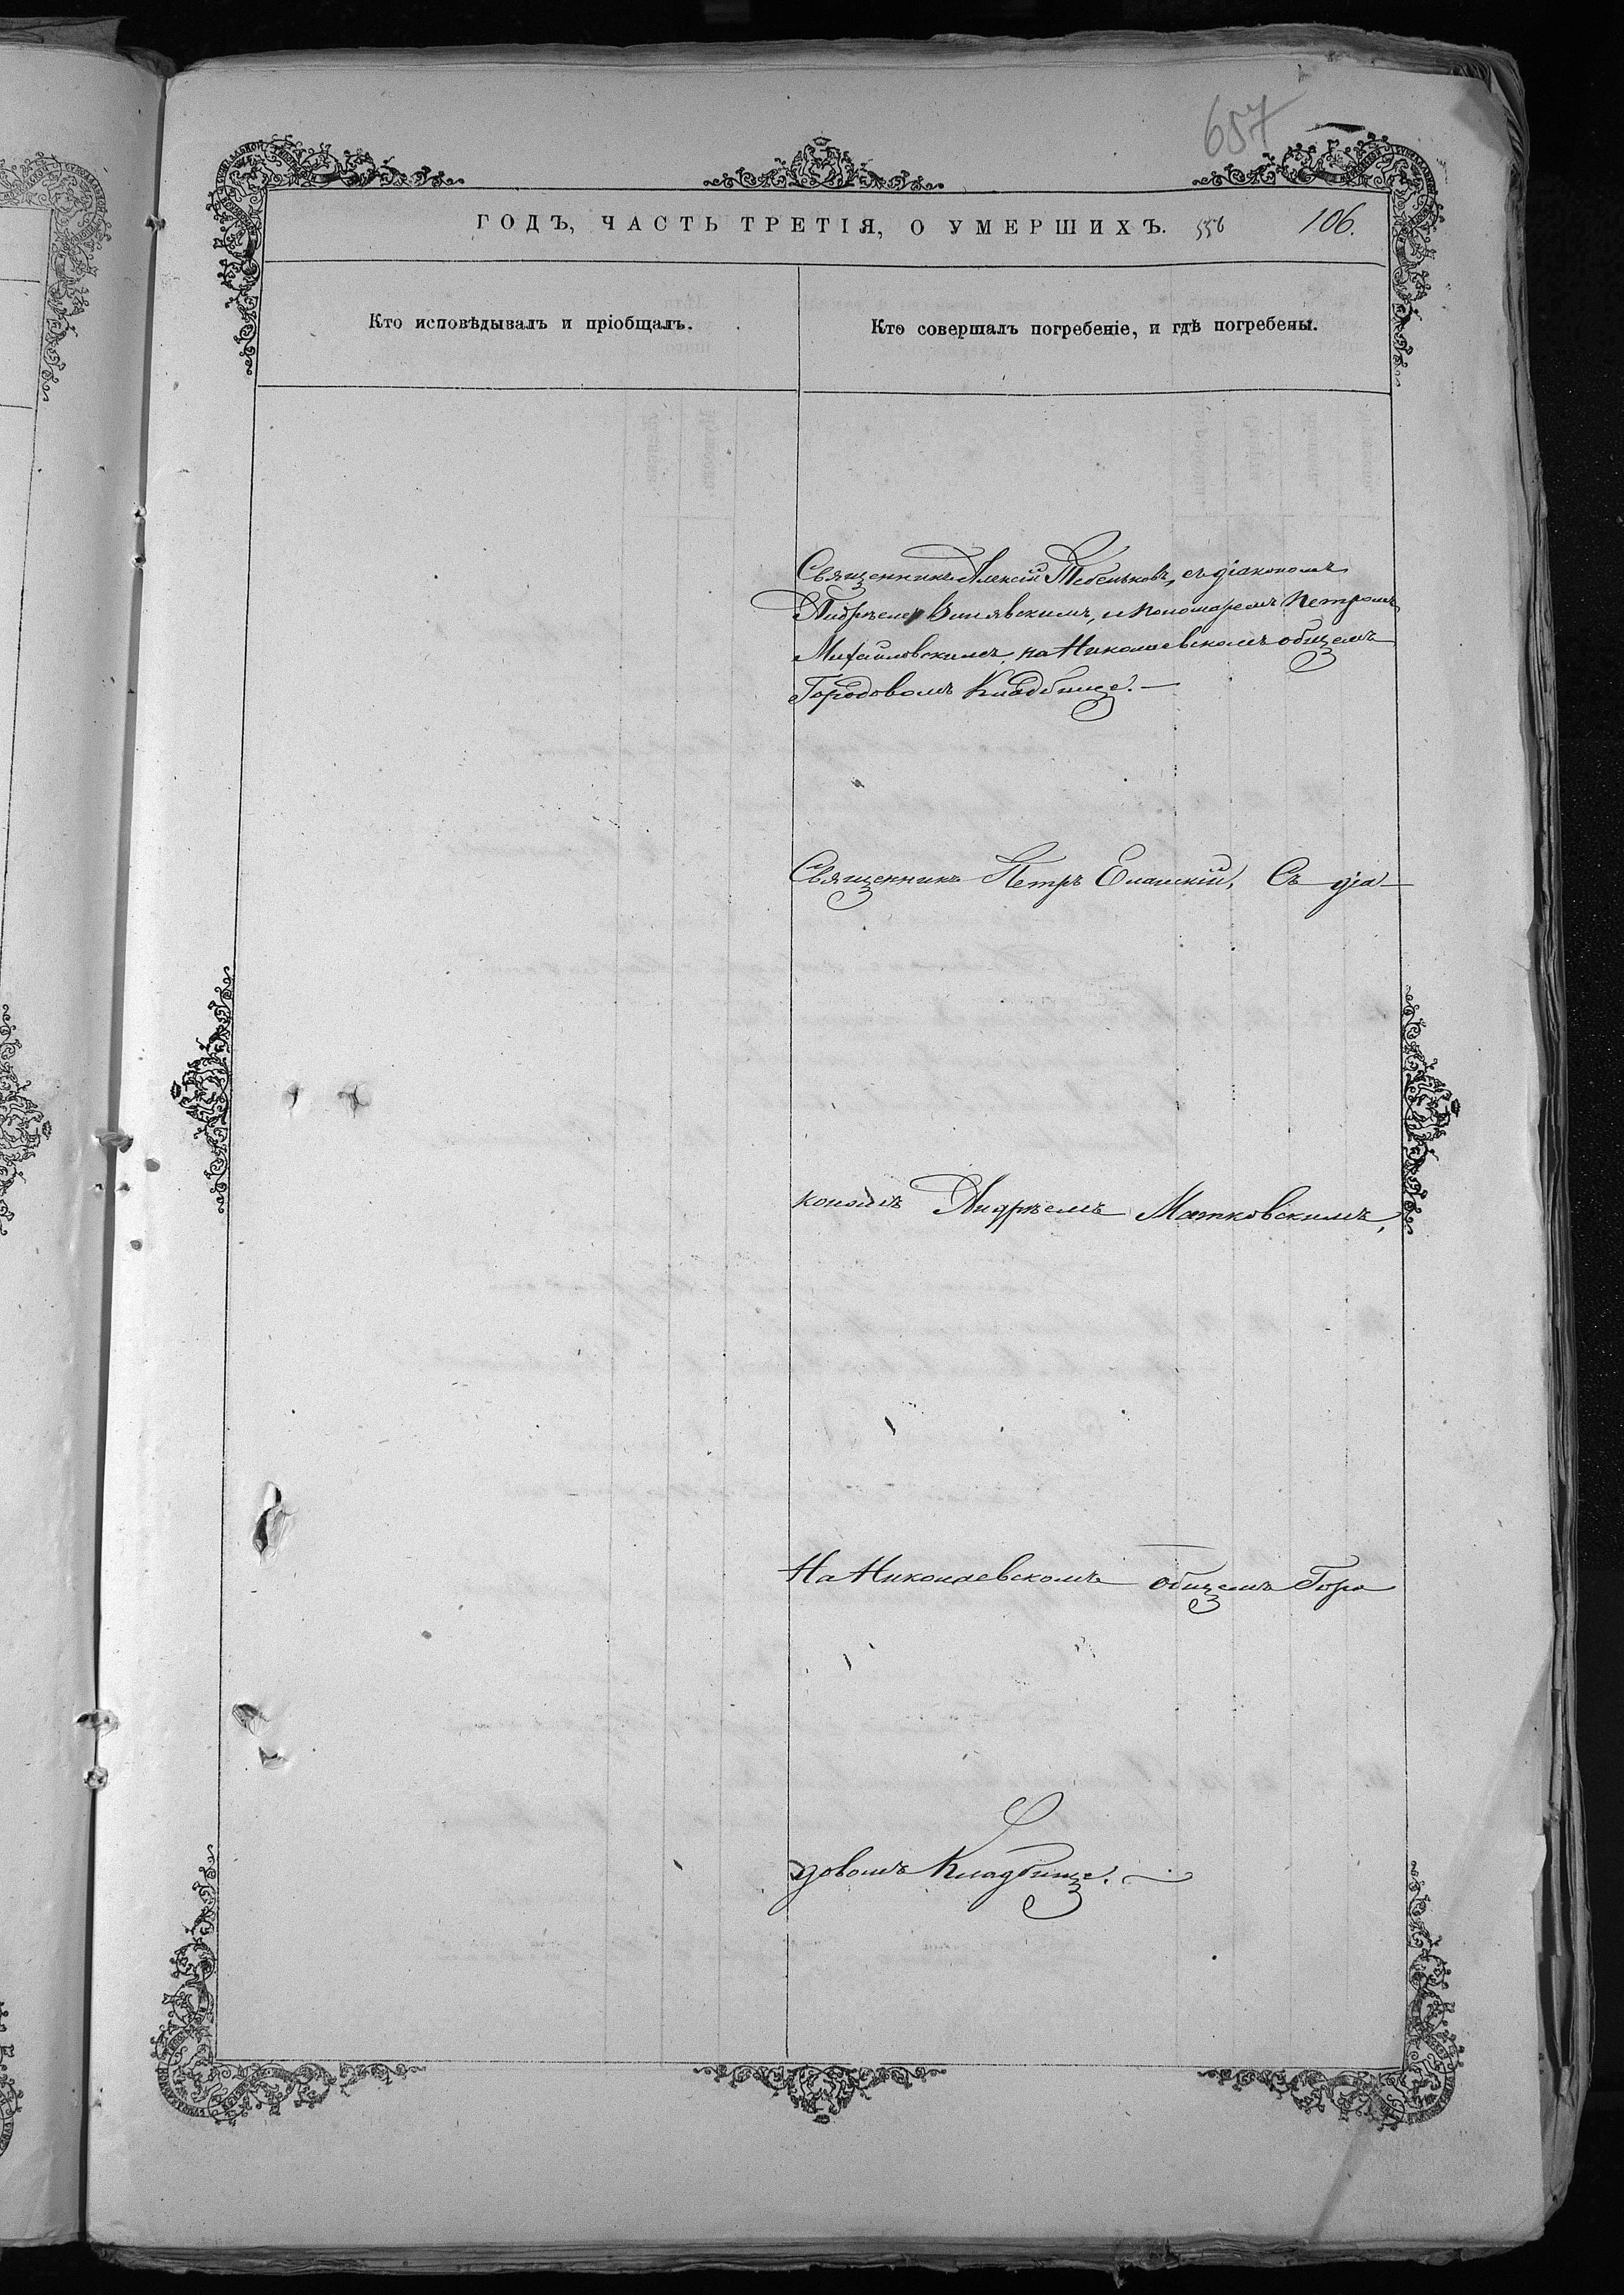 657
ГОДЪ, ЧАСТЬ ТРЕТІЯ, О УМЕРШИХЪ. 556 106.
Кто исповѣдывалъ и пріобщалъ.
Кто совершалъ погребеніе, и гдѣ погребены.
Священникъ Алексій Тебеньковъ, съ діакономъ
Андреемъ и пономаремъ Петромъ
Михайловскимъ, на Николаевскомъ общемъ
Городовомъ Кладбище. —
Священникъ Петръ Еланскій, Съ діа-
кономъ Андреемъ Матковскимъ,
На Николаевскомъ общемъ Горо
довомъ Кладбище. —